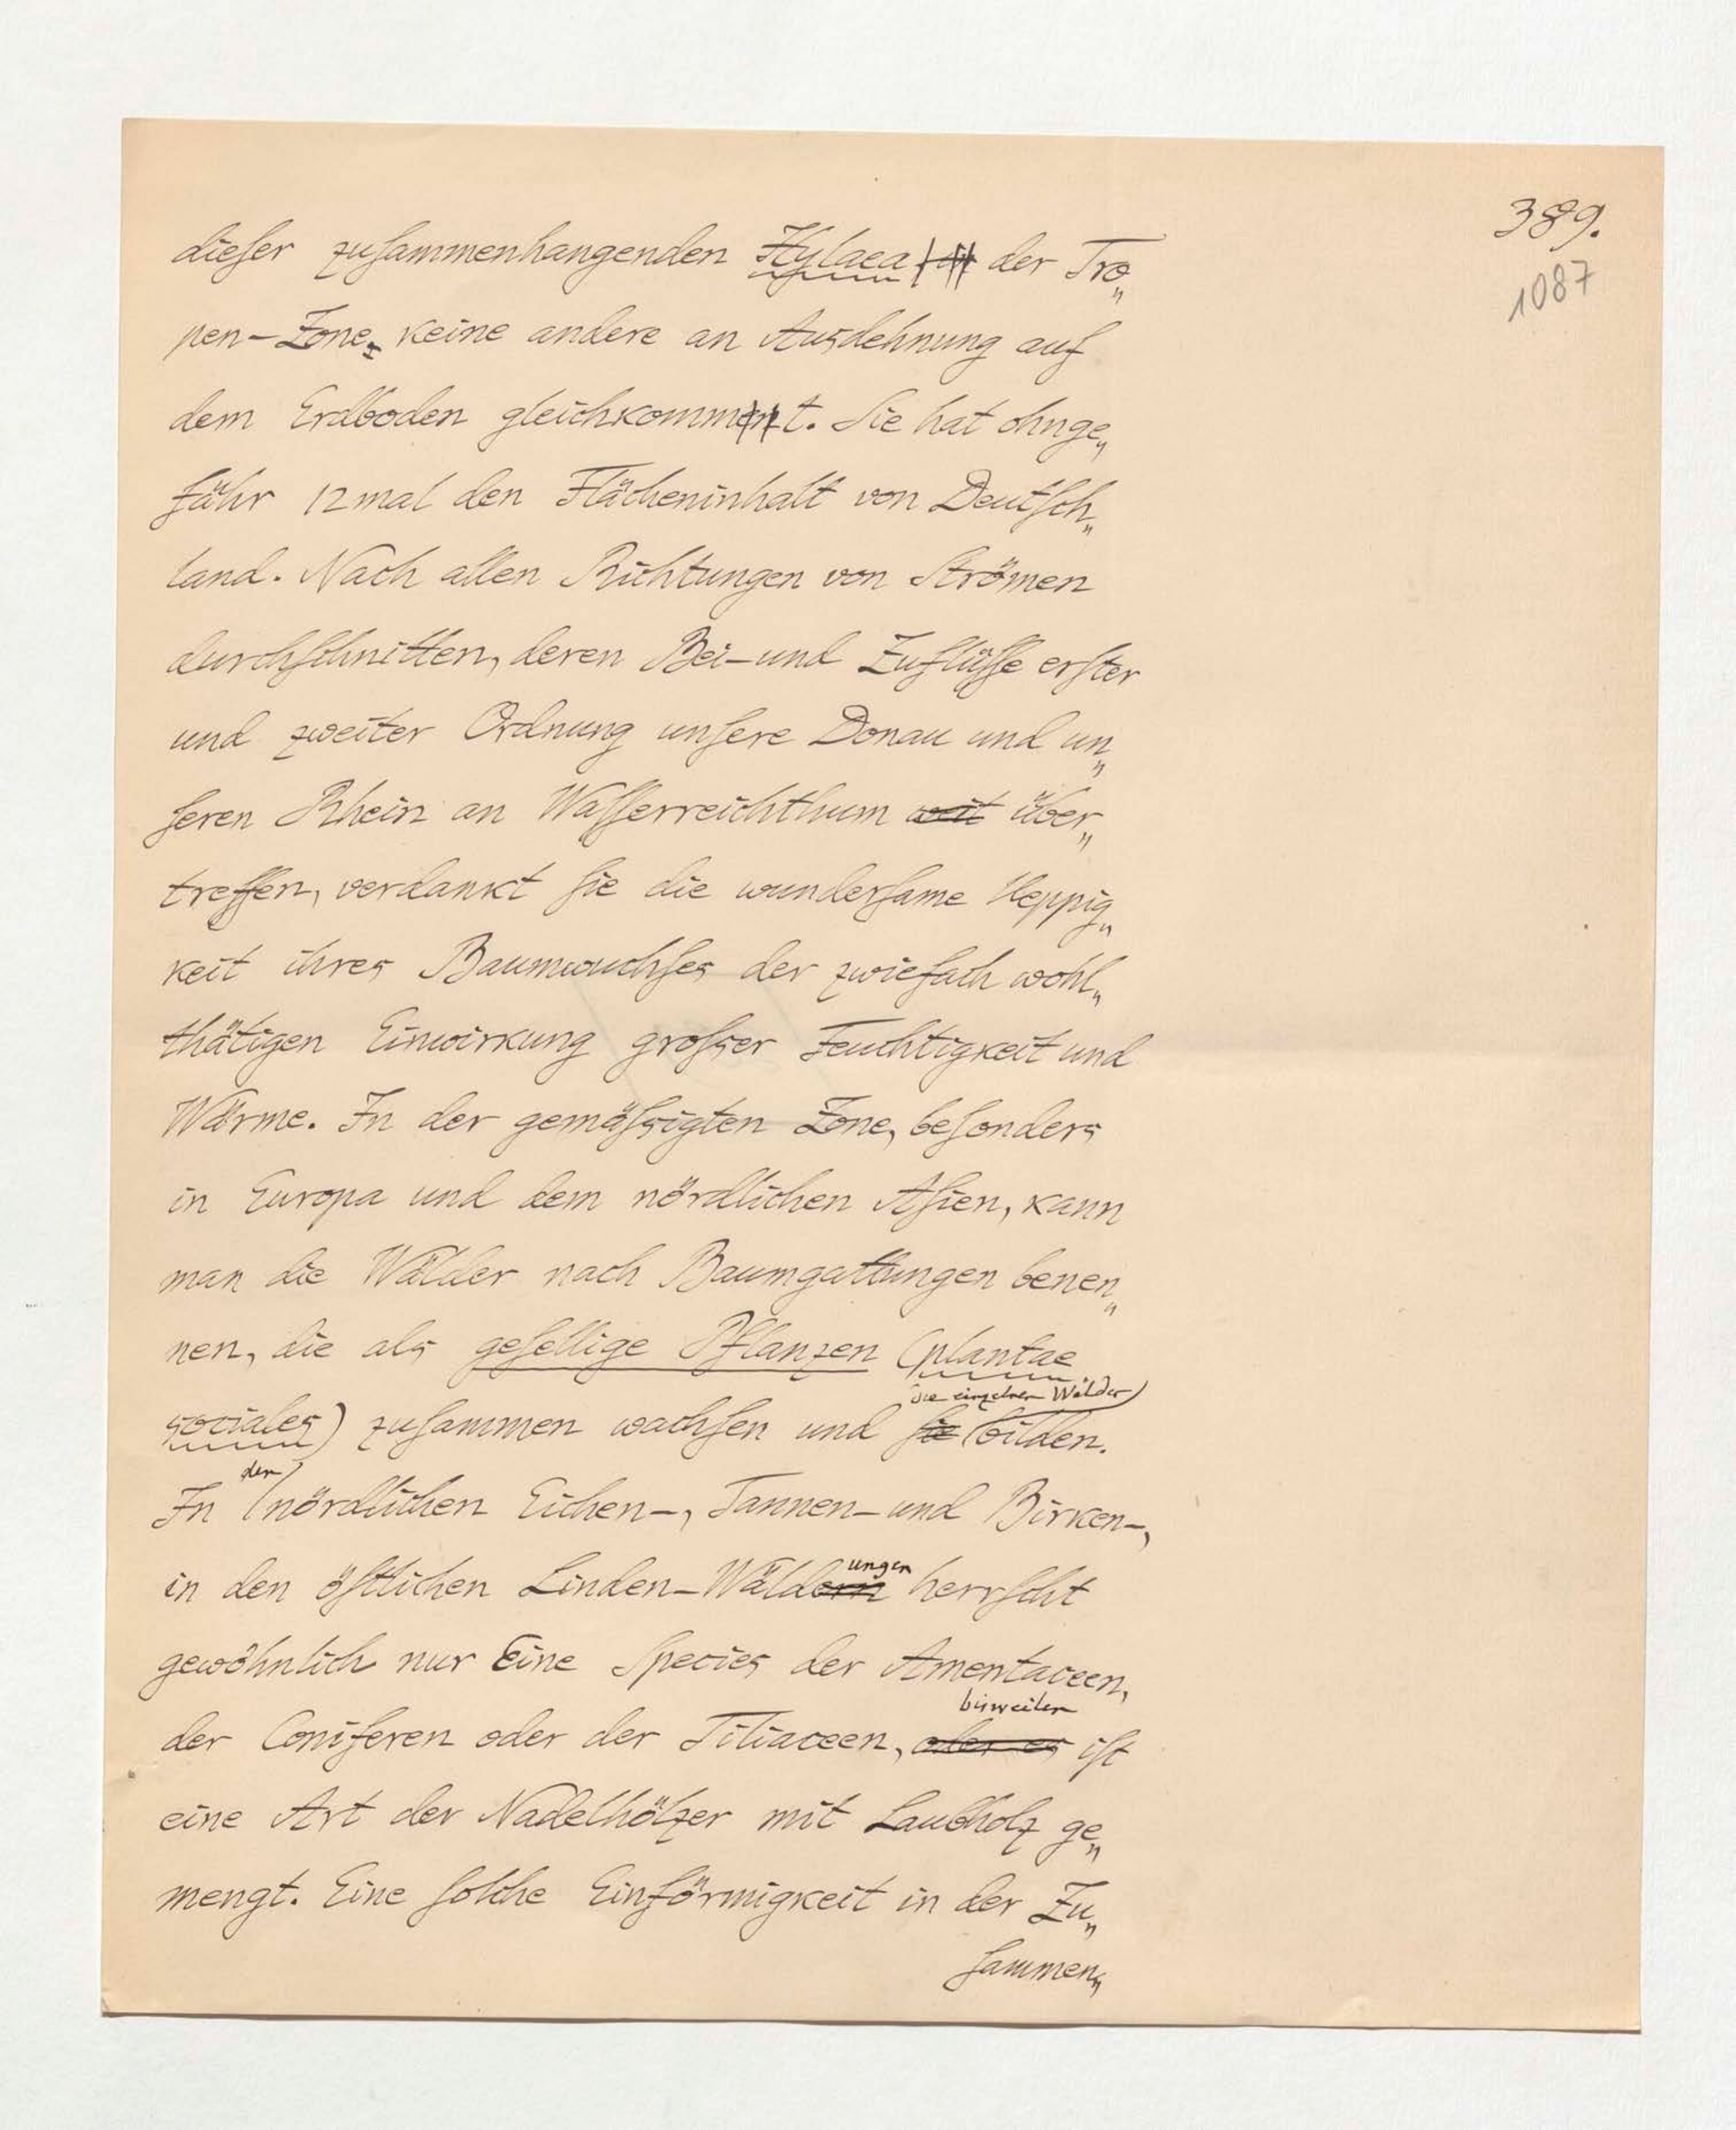 389.
1087
dieſer zuſammenhangenden Hylaea der Tro„
pen-Zone, keine andere an Ausdehnung auf
dem Erdboden gleichkommt. Sie hat ohnge„
fähr 12mal den Flächeninhalt von Deutſch„
land. Nach allen Richtungen von Strömen
durchſchnitten, deren Bei- und Zuflüſſe erſter
und zweiter Ordnung unſere Donau und un„
ſeren Rhein an Waſſerreichthum weit über„
treffen, verdankt ſie die wunderſame Ueppig„
keit ihres Baumwuchſes der zwiefach wohl„
thätigen Einwirkung groſser Feuchtigkeit und
Wärme. In der gemäſsigten Zone, beſonders
in Europa und dem nördlichen Aſien, kann
man die Wälder nach Baumgattungen benen„
nen, die als geſellige Pflanzen (plantae
die einzelnen Wälder
sociales) zuſammen wachſen und ſie bilden.
den
In nördlichen Eichen-, Tannen- und Birken-,
ungen
in den öſtlichen Linden-Wäldern herrſcht
gewöhnlich nur Eine Species der Amentaceen,
bisweilen
der Coniferen oder der Tiliaceen, aber es iſt
eine Art der Nadelhölzer mit Laubholz ge„
mengt. Eine ſolche Einförmigkeit in der Zu„
ſammen„